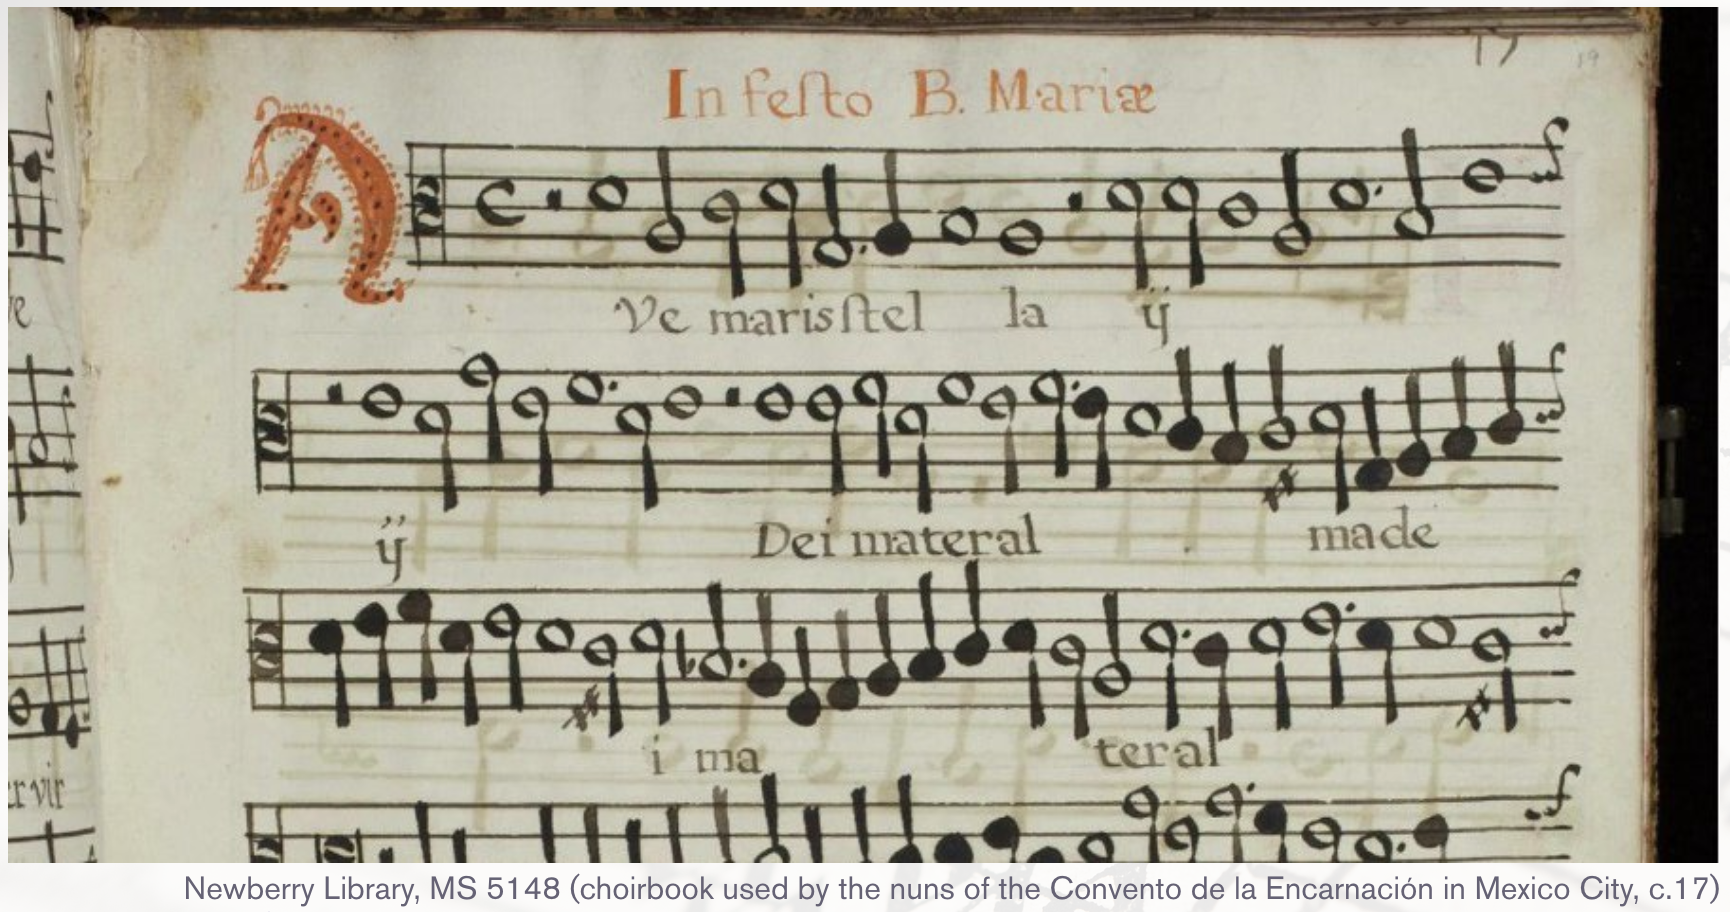 17 19
In feſto B. Mariæ
AVe maris ſtel la ij
ij Dei mater al ma de
i ma ter al
ve
er vir
Newberry Library, MS 5148 (choirbook used by the nuns of the Convento de la Encarnación in Mexico City, c.17)